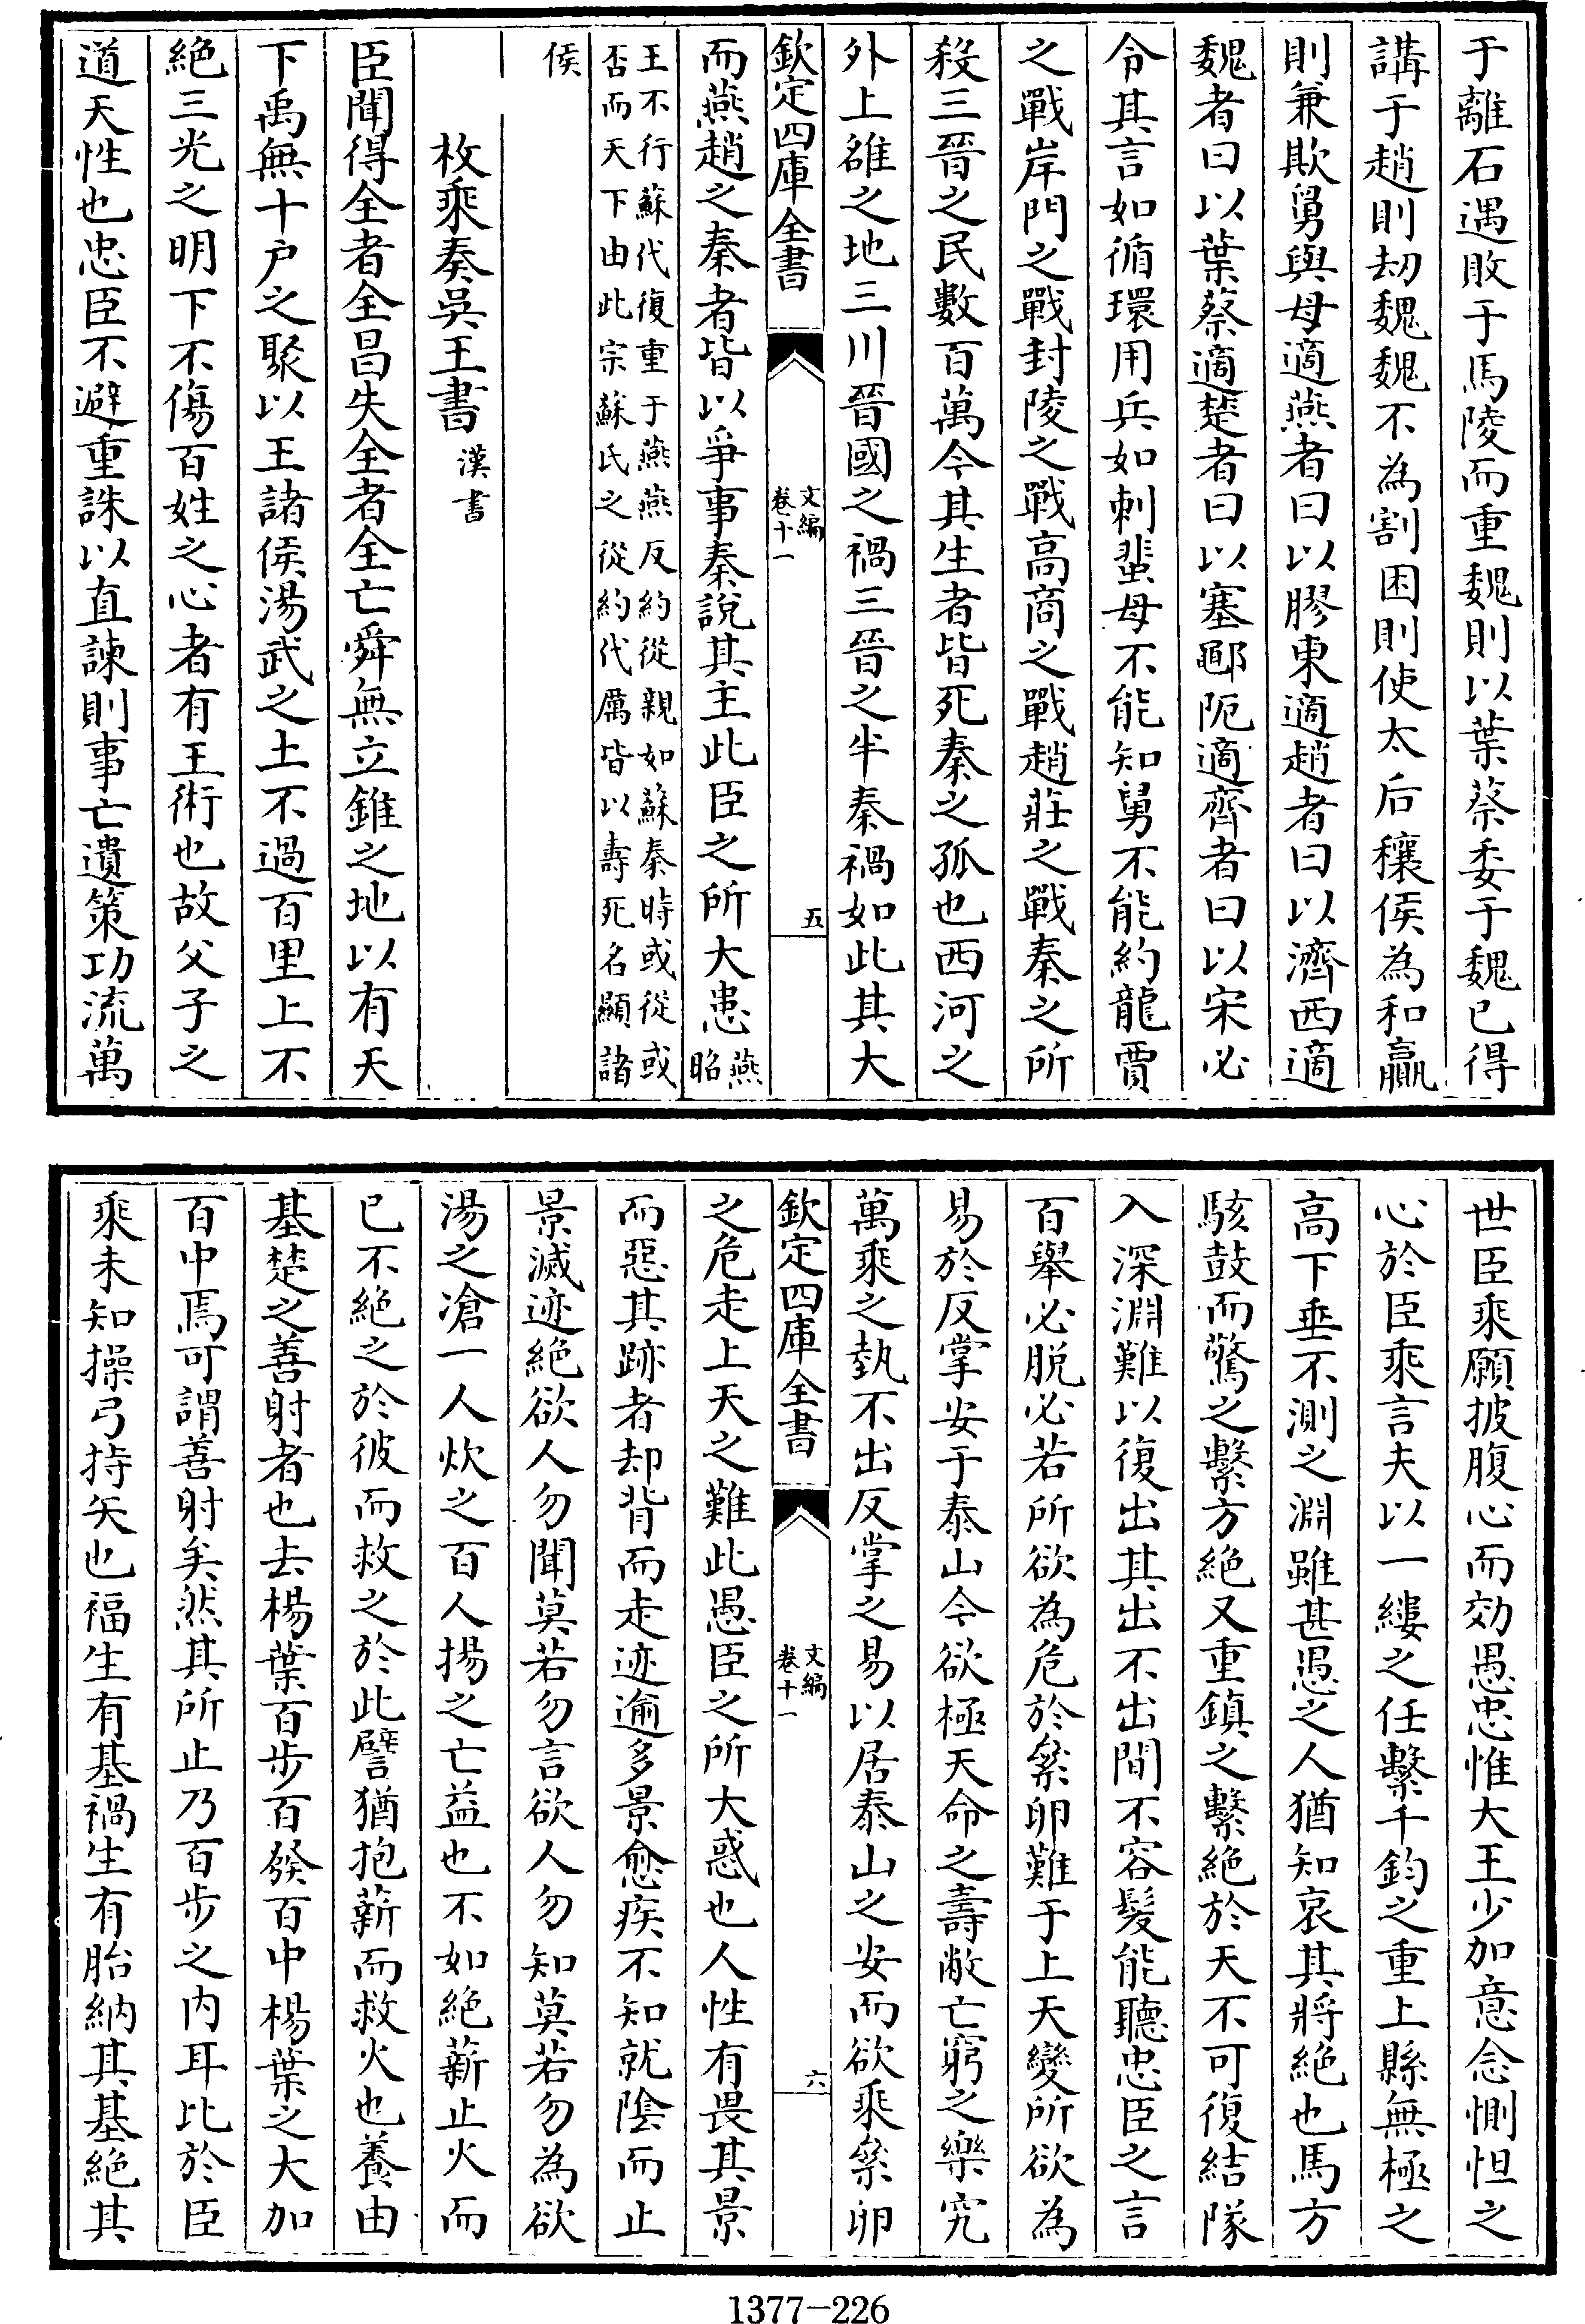 于離石遇敗于馬陵而重魏則以葉蔡委于魏已得
講于趙則刼魏魏不為割困則使太后穰侯為和贏
則兼欺舅與母適燕者曰以膠東適趙者曰以濟西適
魏者曰以葉蔡適楚者曰以塞鄳阨適齊者曰以宋必
令其言如循環用兵如刺蜚母不能知舅不能約龍賈
之戰岸門之戰封陵之戰高商之戰趙莊之戰秦之所
殺三晉之民數百萬今其生者皆死秦之孤也西河之
外上雒之地三川晉國之禍三晉之半秦禍如此其大
欽定四庫全書
文編
卷十一
五
而燕趙之秦者皆以爭事秦說其主此臣之所大患燕昭
王不行蘇代復重于燕燕反約從親如蘇秦時或從或
否而天下由此宗蘇氏之從約代厲皆以壽死名顯諸
侯
枚乘奏吳王書漢書
臣聞得全者全昌失全者全亡舜無立錐之地以有天
下禹無十戶之聚以王諸侯湯武之土不過百里上不
絶三光之明下不傷百姓之心者有王術也故父子之
道天性也忠臣不避重誅以直諫則事亡遺策功流萬
世臣乘願披腹心而効愚忠惟大王少加意念惻怛之
心於臣乘言夫以一縷之任繫千鈞之重上縣無極之
高下垂不測之淵雖甚愚之人猶知哀其將絶也馬方
駭鼓而驚之繫方絶又重鎮之繫絶於天不可復結隊
入深淵難以復出其出不出間不容髮能聽忠臣之言
百舉必脫必若所欲為危於絫卵難于上天變所欲為
易於反掌安于泰山今欲極天命之壽敝亡窮之樂究
萬乘之埶不出反掌之易以居泰山之安而欲乘絫卵
欽定四庫全書
文編
卷十一
六
之危走上天之難此愚臣之所大惑也人性有畏其景
而惡其跡者却背而走迹逾多景愈疾不知就陰而止
景滅迹絶欲人勿聞莫若勿言欲人勿知莫若勿為欲
湯之凔一人炊之百人揚之亡益也不如絶薪止火而
已不絶之於彼而救之於此譬猶抱薪而救火也養由
基楚之善射者也去楊葉百步百發百中楊葉之大加
百中焉可謂善射矣然其所止乃百步之内耳比於臣
乘未知操弓持矢也福生有基禍生有胎納其基絶其
1377-226